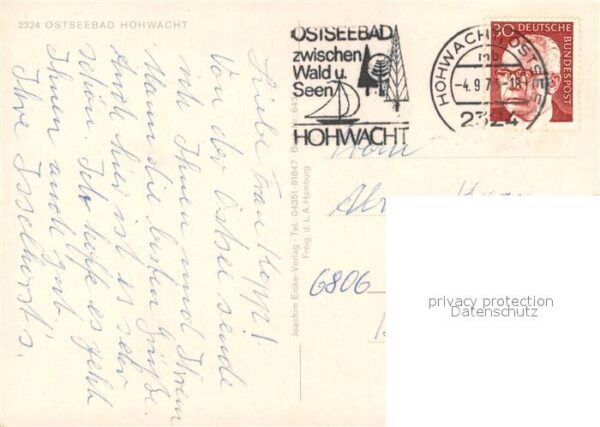 2324 OSTSEEBAD HOHWACHT
Liebe Frau Kopp!
Von der Ostsee sende
ich Ihnen und Ihrem
Mann die besten Grüße.
Auch hier ist es sehr
schön. Ich hoffe es geht
Ihnen auch gut.
Ihre Isselhorst's.
Joachim Eicke-Verlag · Tel.: 04351-81847
Freig. d. L.A. Hamburg
OSTSEEBAD
zwischen
Wald u.
Seen
HOHWACHT
HOHWACHT, OSTSEE
-4.9.7
2324
30 DEUTSCHE
BUNDESPOST
6806
privacy protection
Datenschutz